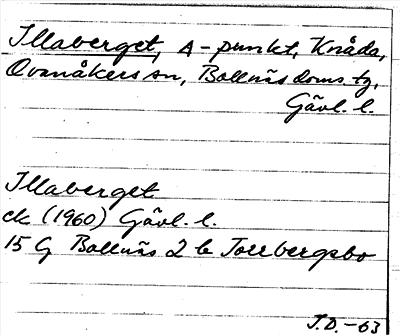 Illaberget, A-punkt, Knåda,
Ovanåkers sn, Bollnäs doms. tg,
Gävl. l.
Illaberget
ek (1960) Gävl. l.
15 G Bollnäs 2 b Tollbergsbo
J.D. -63